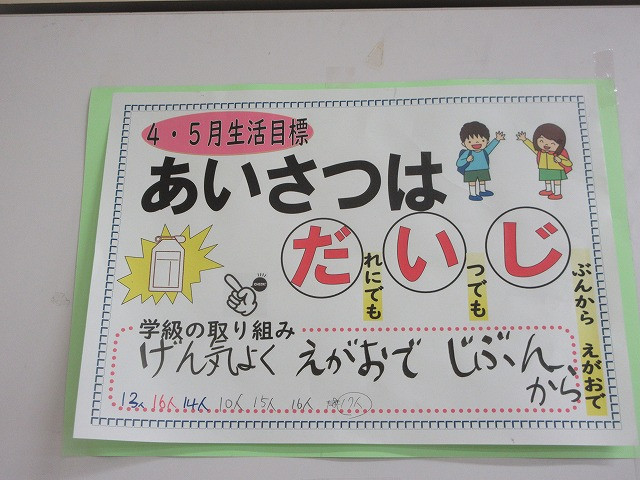 4・5月生活目標
あいさつは
だれにでも
いつでも
じぶんから えがおで
学級の取り組み
げん気よく えがおで じぶん
から
13人 16人 14人 10人 15人 16人 17人